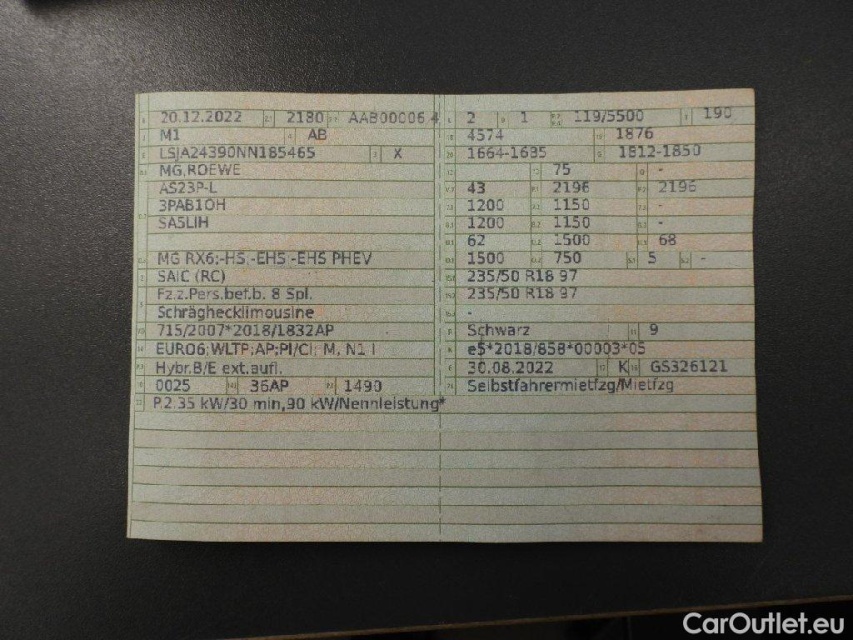 20.12.2022 2180 AAB00006 4
M1 AB
LSJA24390NN185465 X
MG,ROEWE
AS23P-L
3PAB1OH
SA5LIH
MG RX6;-HS,-EHS,-EHS PHEV
SAIC (RC)
Fz.z.Pers.bef.b. 8 Spl.
Schräghecklimousine
715/2007*2018/1832AP
EURO6;WLTP;AP;PI/CI; M, N1 I
Hybr.B/E ext.aufl.
0025 36AP 1490
P.2 35 kW/30 min,90 kW/Nennleistung*
2 1 119/5500 190
4574 1876
1664-1685 1812-1850
- 75 -
43 2196 2196
1200 1150 -
1200 1150 -
62 1500 68
1500 750 5 -
235/50 R18 97
235/50 R18 97
-
Schwarz 9
e5*2018/858*00003*05
30.08.2022 K GS326121
Selbstfahrermietfzg/Mietfzg
CarOutlet.eu